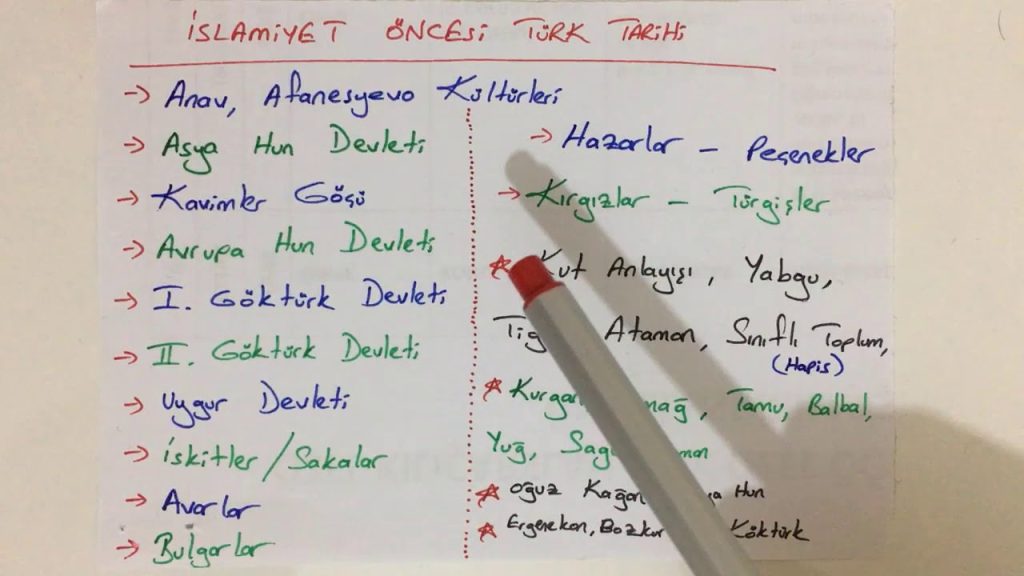 İSLAMİYET ÖNCESİ TÜRK TARİHİ
→ Anav, Afanesyevo Kültürleri
→ Asya Hun Devleti
→ Kavimler Göçü
→ Avrupa Hun Devleti
→ I. Göktürk Devleti
→ II. Göktürk Devleti
→ Uygur Devleti
→ İskitler / Sakalar
→ Avarlar
→ Bulgarlar
→ Hazarlar - Peçenekler
→ Kırgızlar - Türgişler
☆ Kut Anlayışı, Yabgu,
Ataman, Sınıflı Toplum,
(Hapis)
☆ Tamu, Balbal,
Yuğ,
☆ Oğuz Kağan Hun
☆ Ergenekon, Köktürk